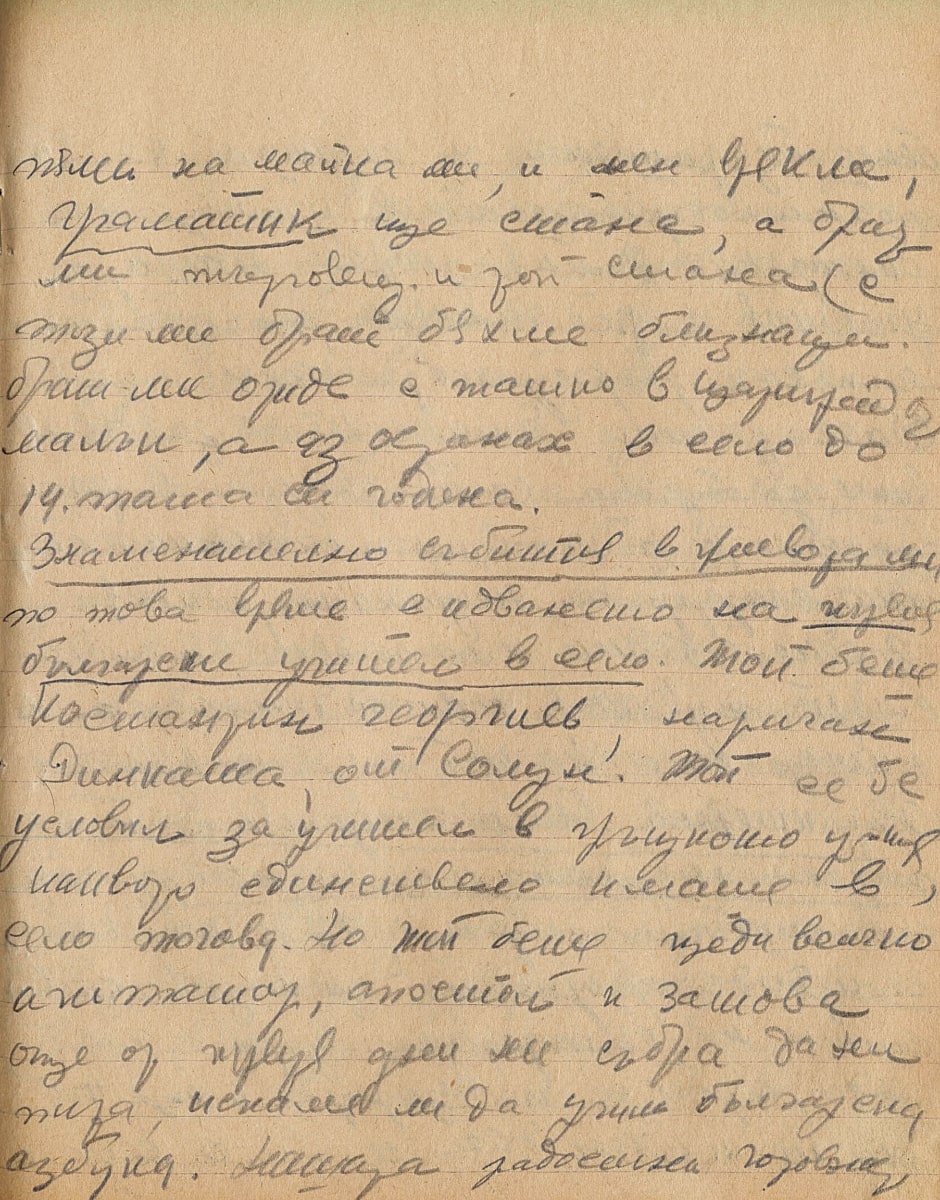 на майка ми, и мен рекла,
граматик ще стане, а брат
ми търговец. и той стана (с
тзи ми брат бяхме близнаци.
брат ми отиде с татко в Цариград
малък, а яз останах в село до
14. тата си година.
Знаменателно събитие в живота ми
по това време е идването на първия
български учител в село. Той беше
Костандин Георгиев, наричан
Динката, от Солун. Той се бе
условил за учител в гръцкото училище
каквото единствено имаше в
село тогава. Но той беше преди всичко
агитатор, апостол и затова
още от първия дни ни събра да ни
пита, искаме ли да учим българска
азбука. Нашата радостна готовност